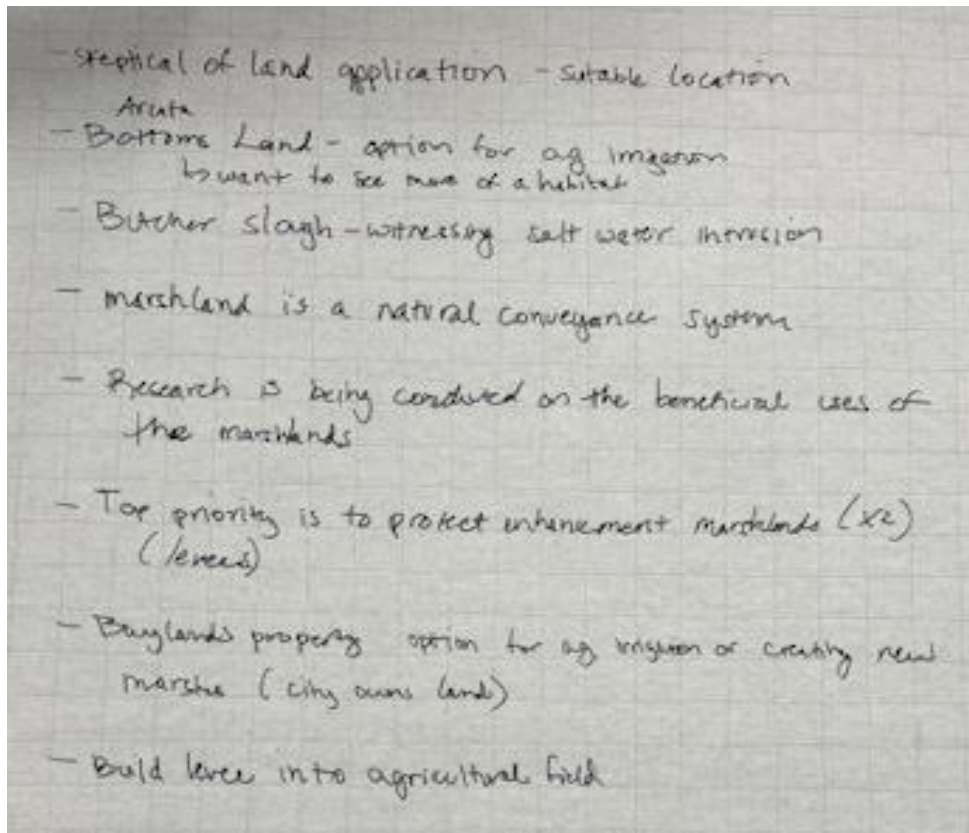 - skeptical of land application - sutable location
Arcata
- Bottoms Land - option for ag irrigation
↳ want to see more of a habitat
- Butcher slough - witnessing salt water intrusion
- marshland is a natural conveyance system
- Research is being conducted on the beneficial uses of
the marshlands
- Top priority is to protect enhancement marshlands (x2)
(levees)
- Baylands property option for ag irrigation or creating new
marshes (city owns land)
- Build levee into agricultural field